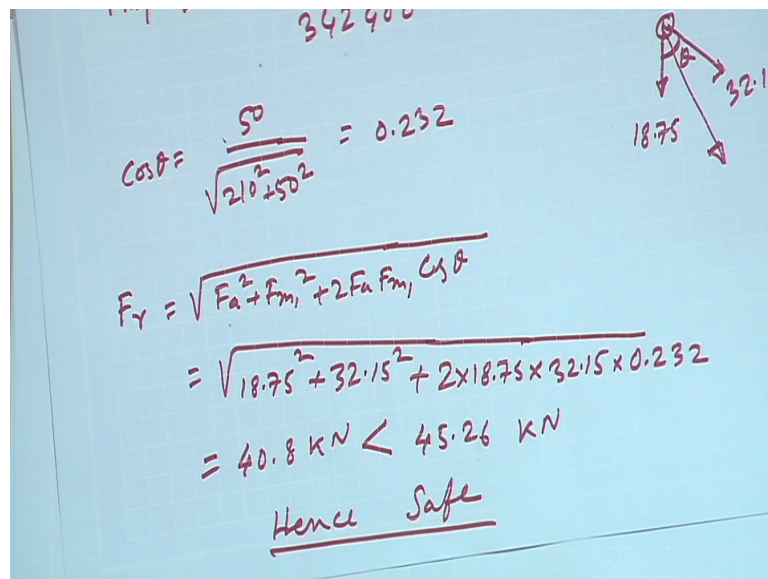 342400
cosθ = 50 / √210²+50² = 0.232
θ
32.1
18.75
Fr = √Fa²+Fm₁²+2FaFm₁ Cosθ
= √18.75²+32.15²+2×18.75×32.15×0.232
= 40.8 KN < 45.26 KN
Hence Safe